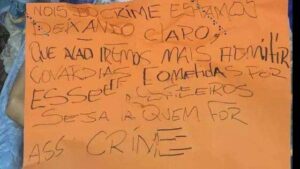 NOIS DO CRIME ESTAMOS
DEIXANDO CLARO,
QUE NÃO IREMOS MAIS ADMITIR
COVARDIAS COMETIDAS POR
ESSES
SEJA A QUEM FOR
ASS CRIME